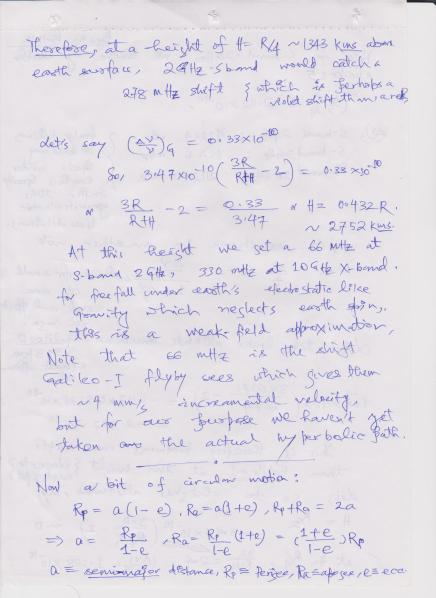 Therefore, at a height of H = R/4 ~ 1343 kms above
earth surface, 2GHz S-band would catch a
278 mHz shift { which is perhaps a
violet shift
Let's say (Δν/ν)_G = 0.33×10⁻¹⁰
So, 3.47×10⁻¹⁰ (3R/(R+H) - 2) = 0.33×10⁻¹⁰
or 3R/(R+H) - 2 = 0.33/3.47 or H = 0.432 R.
~ 2752 kms.
At this height we get a 66 mHz at
S-band 2GHz, 330 mHz at 10GHz X-band.
for free fall under earth's electrostatic like
Gravity which neglects earth spin,
this is a weak-field approximation,
Note that 66 mHz is the shift
Galileo-I flyby sees which gives them
~4 mm/s incremental velocity,
but for our purpose we haven't yet
taken the actual hyperbolic path.
Now a bit of circular motion:
Rp = a(1-e), Ra = a(1+e), Rp+Ra = 2a
⇒ a = Rp/(1-e), Ra = Rp/(1-e) (1+e) = ((1+e)/(1-e)) Rp
a ≡ semimajor distance, Rp ≡ perigee, Ra ≡ apogee, e ≡ ecc